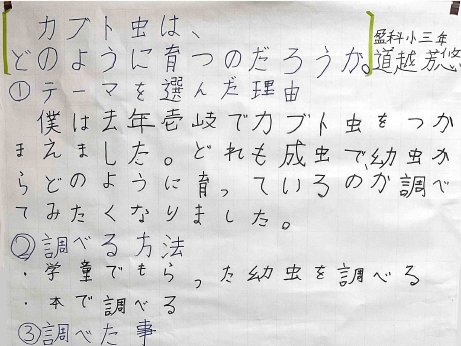 カブト虫は、
どのように育つのだろうか。
盈科小三年
道越芳悠
①テーマを選んだ理由
僕は去年壱岐でカブト虫をつか
まえました。どれも成虫で、幼虫か
らどのように育っているのか調べ
てみたくなりました。
②調べる方法
・学童でもらった幼虫を調べる
・本で調べる
③調べた事